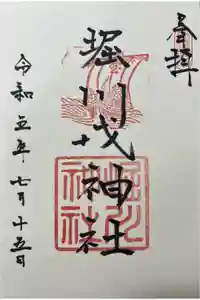 奉拝
堀川戎神社
令和五年七月十五日
堀川
神社